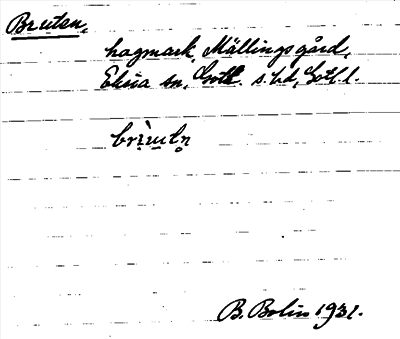 Bruten,
hagmark, Mällings gård,
Eksta sn, Gotl. s. hd, Gotl. l.
brìutn̥
B. Bolin 1931.